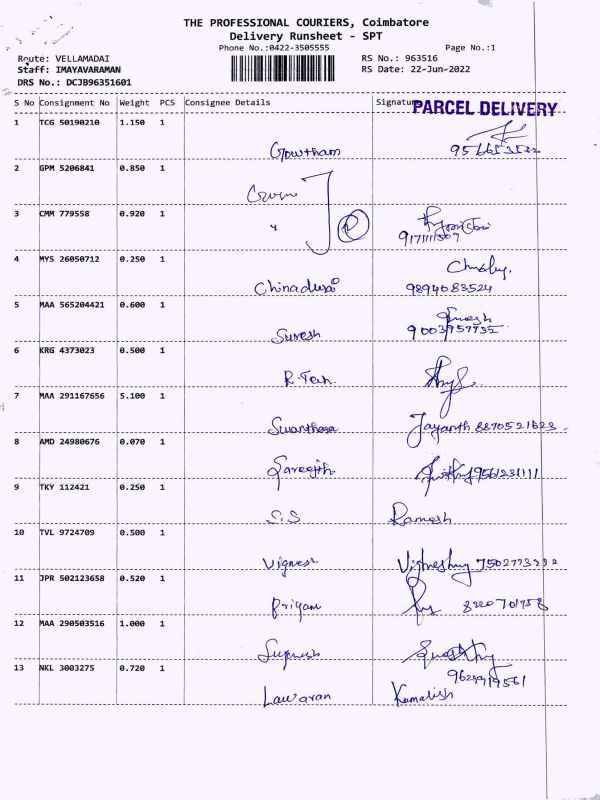 THE PROFESSIONAL COURIERS, Coimbatore
Delivery Runsheet - SPT
Phone No.:0422-3505555 Page No.:1
Route: VELLAMADAI RS No.: 963516
Staff: IMAYAVARAMAN RS Date: 22-Jun-2022
DRS No.: DCJB96351601
S No Consignment No Weight PCS Consignee Details Signature
PARCEL DELIVERY
1 TCG 50190210 1.150 1
Gowtham
2 GPM 5206841 0.850 1
3 CMM 779558 0.920 1
4 MYS 26050712 0.250 1
Chinadurai 9894083524
5 MAA 565204421 0.600 1
Suresh 9003957735
6 KRG 4373023 0.500 1
R.Tech
7 MAA 291167656 5.100 1
Jayanth 8870521623
8 AMD 24980676 0.070 1
9561231111
9 TKY 112421 0.250 1
S.S Ramesh
10 TVL 9724709 0.500 1
Vignesh 7502773232
11 JPR 502123658 0.520 1
8220701958
12 MAA 290503516 1.000 1
13 NKL 3003275 0.720 1
9629919561
Lawaran Kamalish